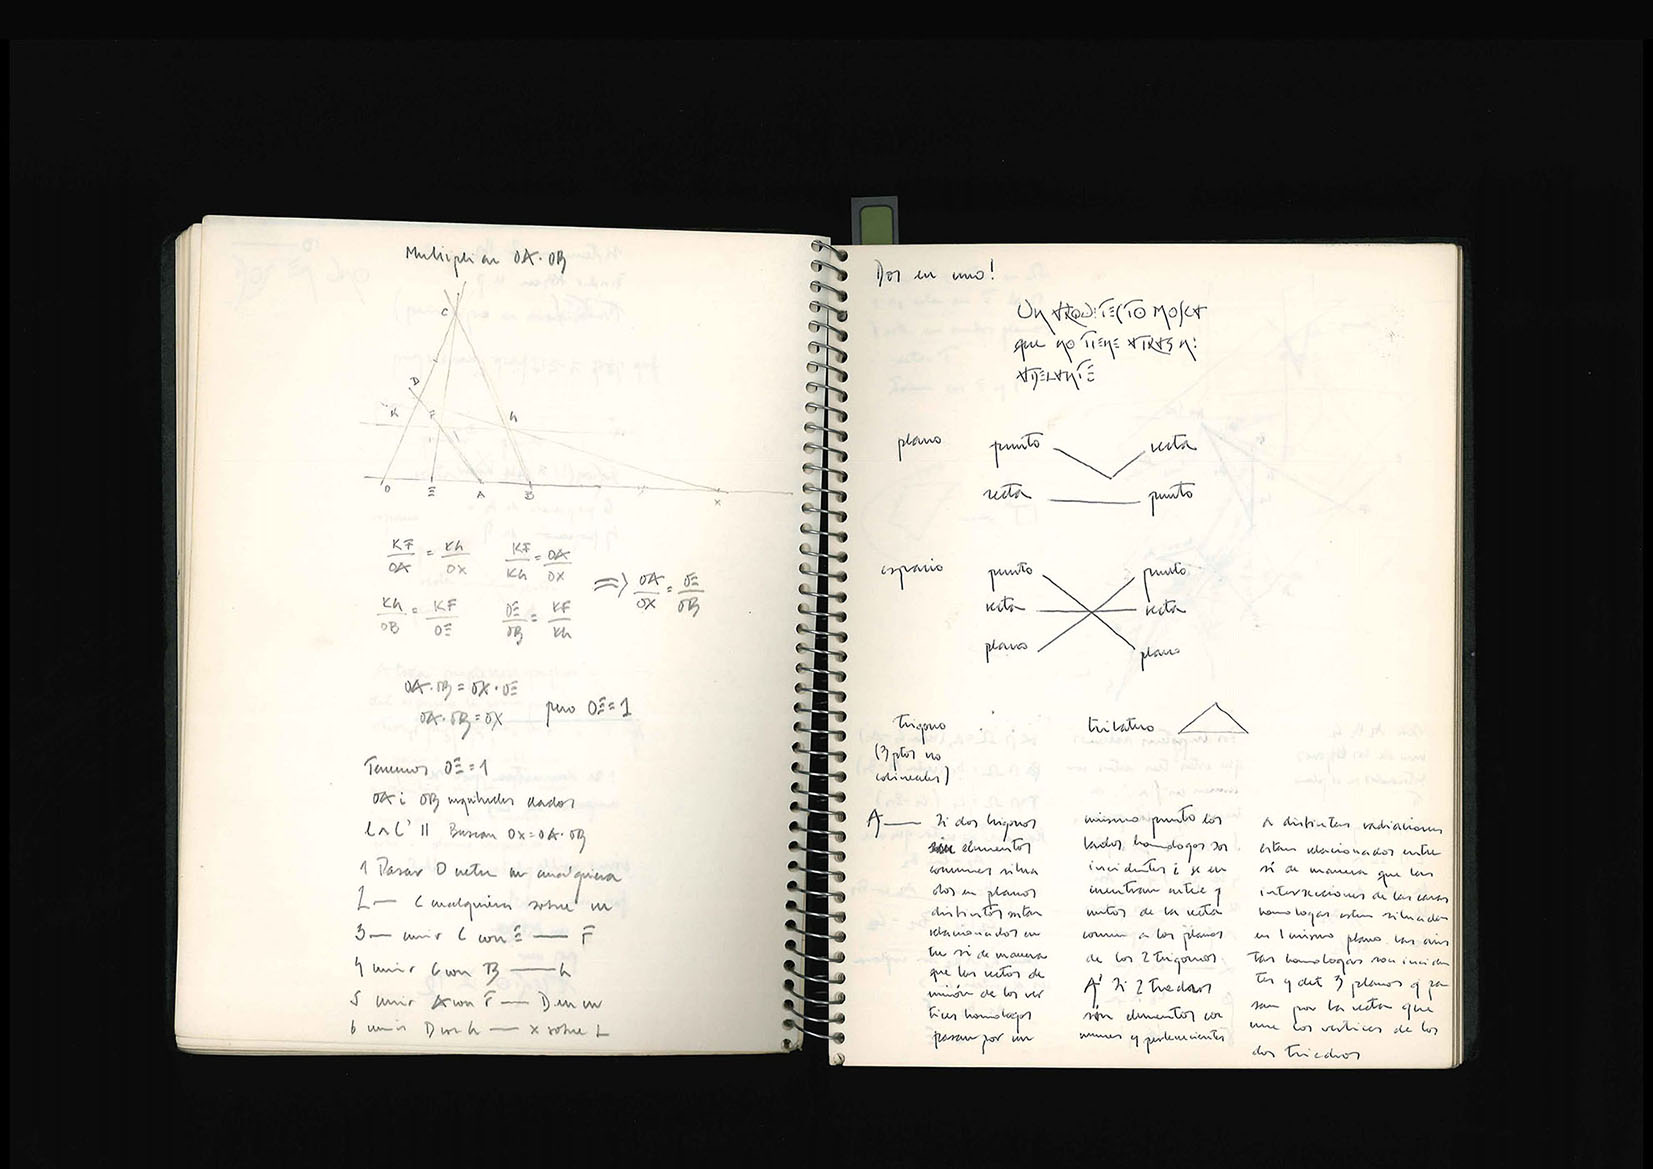 Multiplicar OA·OB
C
D
K F h
O E A B X
KF/OA = Kh/OX KF/Kh = OA/OX => OA/OX = OE/OB
Kh/OB = KF/OE OE/OB = KF/Kh
OA·OB = OX·OE
OA·OB = OX pero OE=1
Tenemos OE=1
OA i OB segmentos dados
L ∧ L' || Buscar OX=OA·OB
1 Pasar O recta m cualquiera
2 — C cualquiera sobre m
3 — unir C con E — F
4 unir C con B — h
5 unir A con F — D en m
6 unir D con h — x sobre L
Dos en uno!
Un ARQUITECTO MOSCA
que no TIENE ATRAS ni
ADELANTE
plano punto recta
recta punto
espacio punto punto
recta recta
plano plano
trigono trilatero
(3 ptos no
colineales)
A — Si dos trigonos
sin elementos
comunes situa
dos en planos
distintos estan
relacionados en
tre si de manera
que las rectas de
unión de los ver
tices homologos
pasan por un
mismo punto los
lados homologos son
incidentes i se en
cuentran entre q
puntos de la recta
comun a los planos
de los 2 trigonos
A' Si 2 triedros
sin elementos co
munes y pertenecientes
a distintas radiaciones
estan relacionados entre
si de manera que las
intersecciones de las caras
homologas esten situadas
en 1 mismo plano las aris
tas homologas son inciden
tes y det 3 planos q pa
san por la recta que
une los vertices de los
dos triedros